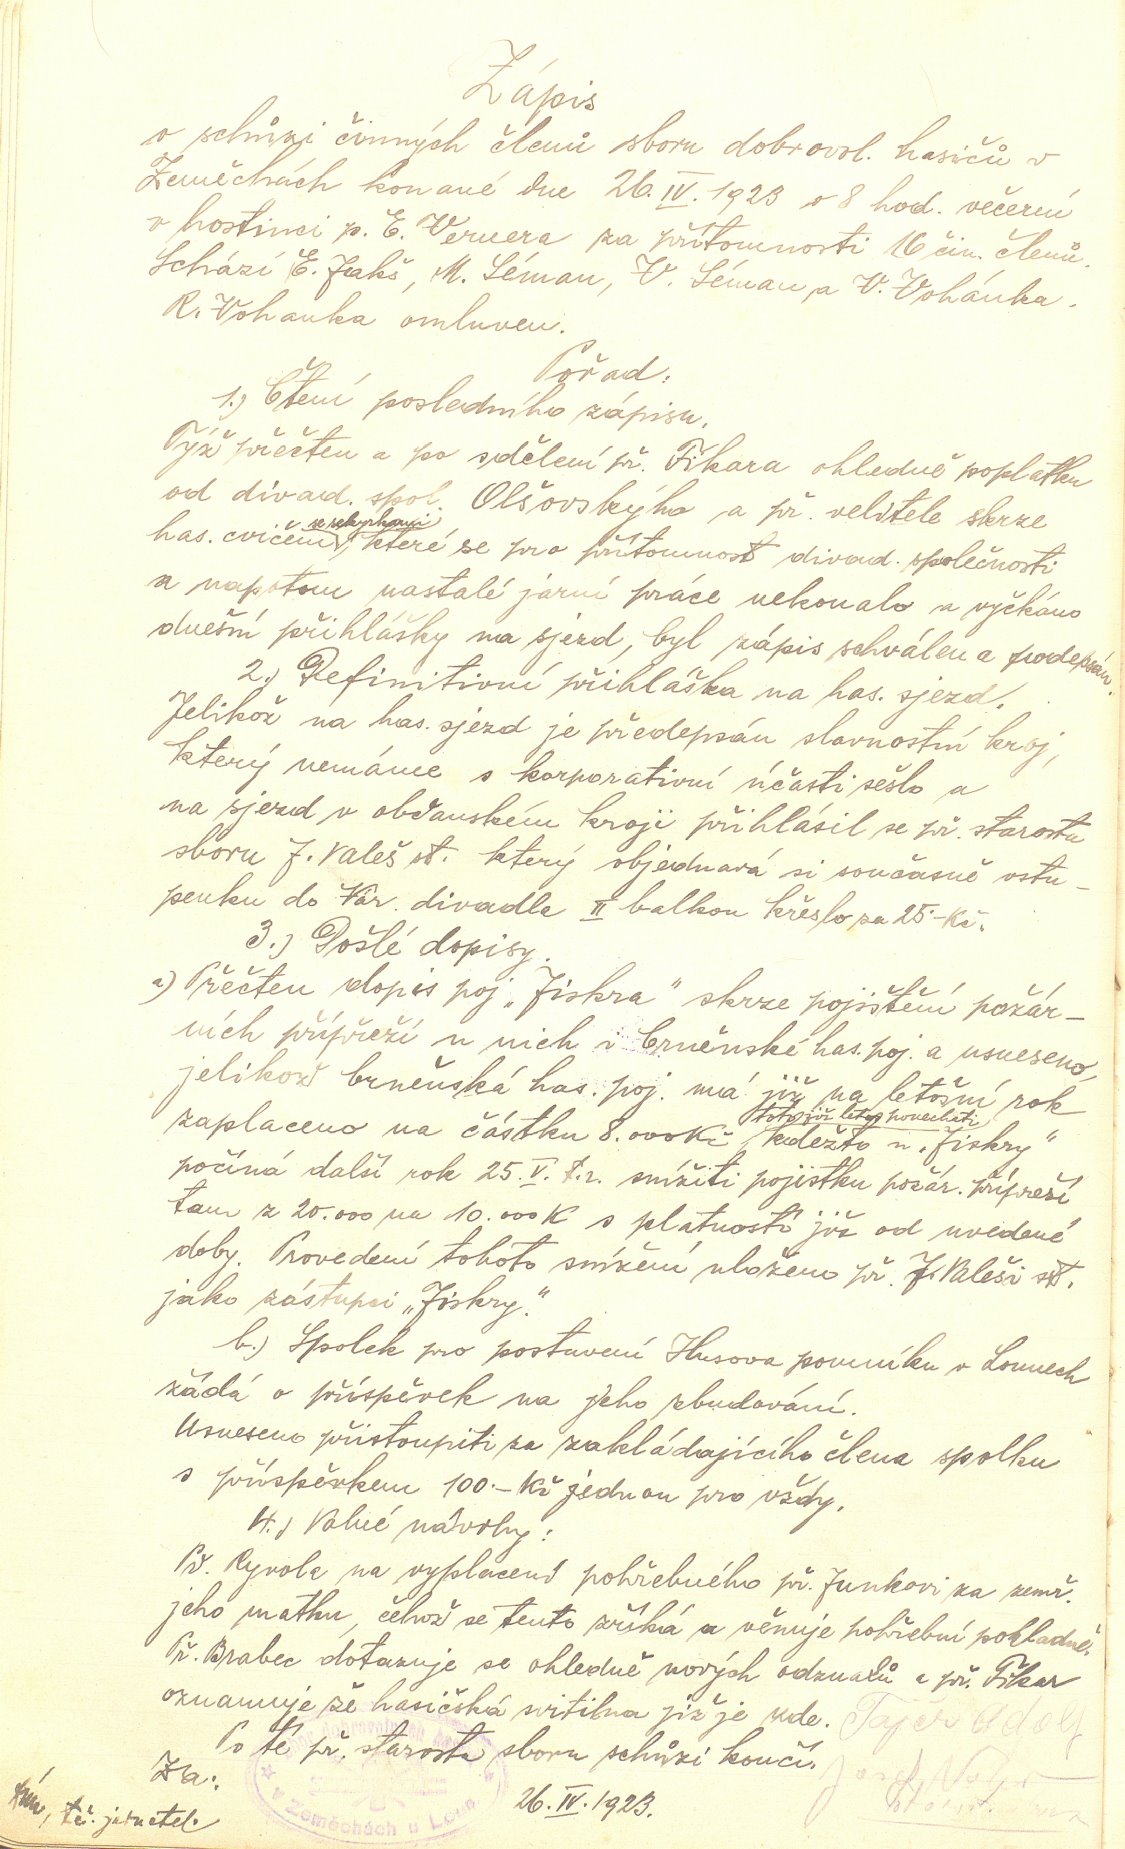 Zápis
o schůzi činných členů sboru dobrovol. hasičů v
Zeměchách konané dne 26.IV.1923 o 8 hod. večerní
v hostinci p. E. Wernera za přítomnosti 16 čin. členů.
Schází E. Jakš, M. Léman, V. Léman a V. Vohánka.
R. Vohanka omluven.
Pořad:
1.) Čtení posledního zápisu.
Týž přečten a po sdělení př. Fikara ohledně poplatku
od divad. spol. Olšovskýho a př. velitele skrze
has. cvičení, které se pro přítomnost divad. společnosti
a napotom nastalé jarní práce nekonalo a vyčkáno
dnešní přihlášky na sjezd, byl zápis schválen a podepsán.
2.) Definitivní přihláška na has. sjezd.
Jelikož na has. sjezd je předepsán slavnostní kroj,
který nemáme s korporativní účasti sešlo a
na sjezd v občanském kroji přihlásil se př. starosta
sboru J. Valeš st. který objednavá si současně vstu-
penku do Nár. divadla II balkon křeslo za 25.- Kč.
3.) Došlé dopisy.
a) Přečten dopis poj. „Jiskra" skrze pojištění požár-
ních přípřeží u nich i brněnské has. poj. a usneseno,
jelikož brněnská has. poj. má již na letošní rok
toto již letos ponechati
zaplaceno na částku 8.000 Kč, kdežto u „Jiskry"
počíná další rok 25.V.t.r. snížiti pojistku požár. přípřeží
tam z 20.000 na 10.000 K s platností již od uvedené
doby. Provedení tohoto snížení uloženo př. J. Valeši st.
jako zástupci „Jiskry."
b.) Spolek pro postavení Husova pomníku v Lounech
žádá o příspěvek na jeho zbudování.
Usneseno přistoupiti za zakládajícího člena spolku
s příspěvkem 100.- Kč jednou pro vždy.
4.) Volné návrhy:
Př. Ryvola na vyplacení pohřebného př. Junkovi za zemř.
jeho matku, čehož se tento zříká a věnuje pohřební pokladně.
Př. Brabec dotazuje se ohledně nových odznaků a př. Fikar
oznamuje že hasičská svitilna již je zde. Tajčr Adolf
Po té př. starosta sboru schůzi končí.
Za:
26.IV.1923.
t.č. jednatel.
v Zeměchách u Loun